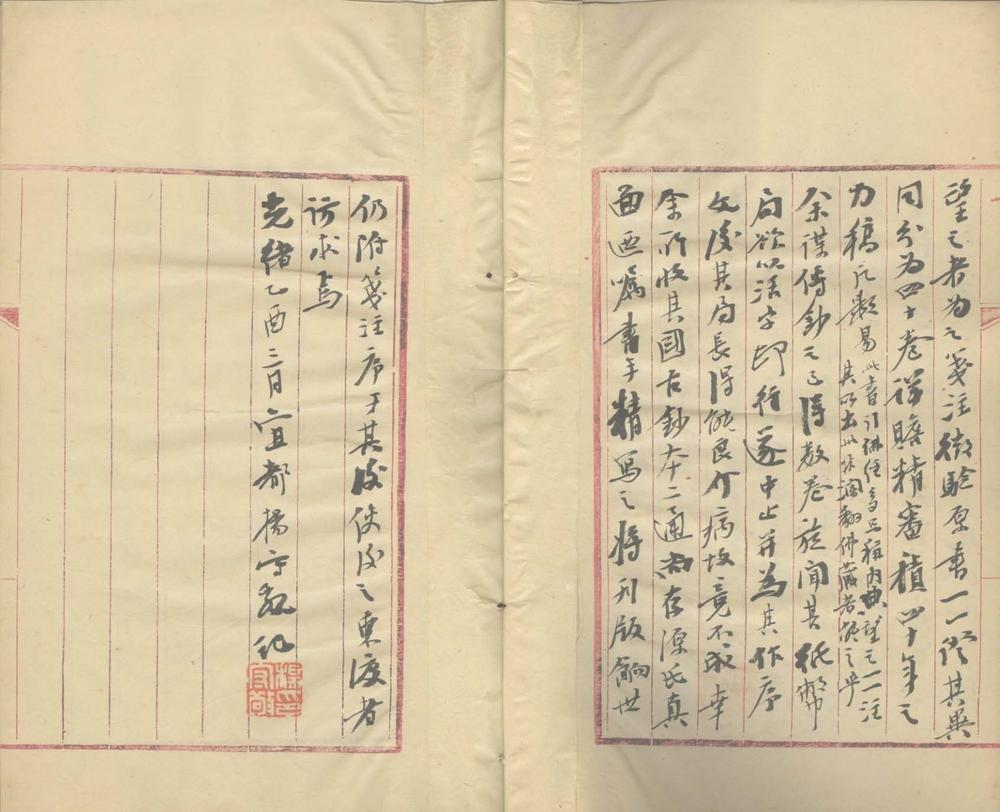 望之者為之箋注徵驗原書一一證其異
同分為四十卷詳贍精審積四十年之
力稿凡數易此書引佛經多只稱內典望之一一注
其所出此非淹翻佛藏者能之乎
余謀傳鈔之已得數卷旋聞其紙幣
局欲以活字印行遂中止并為其作序
文後其局長得能良介病故竟不成幸
余所收其國古鈔本二通尚存源氏真
面逎囑書手精寫之將刊版餉世
仍附箋注序于其後使後之東渡者
訪求焉
光緒乙酉三月宜都楊守敬記
楊印守敬